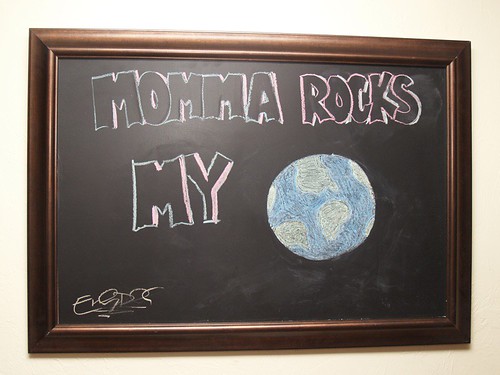 MOMMA ROCKS
MY